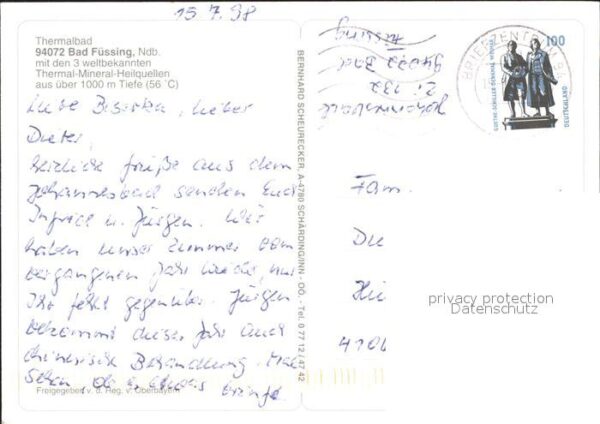 15.7.98
Thermalbad
94072 Bad Füssing, Ndb.
mit den 3 weltbekannten
Thermal-Mineral-Heilquellen
aus über 1000 m Tiefe (56 °C)
Liebe Biserka, lieber
Dieter,
herzliche Grüße aus dem
Johannesbad senden Euch
Ingrid u. Jürgen. Wir
haben unser Zimmer vom
vergangenen Jahr wieder, nur
Ihr fehlt gegenüber. Jürgen
bekommt dieses Jahr auch
chinesische Behandlung. Mal
sehen, ob es etwas bringt.
Freigegeben v. d. Reg. v. Oberbayern
BERNHARD SCHEURECKER, A-4780 SCHÄRDING/INN - OÖ. - Tel. 0 77 12 / 47 42
Johannesbad
Zi. 132
94072 Bad
Füssing
BRIEFZENTRUM 94
100
DEUTSCHLAND
GOETHE-SCHILLER-DENKMAL WEIMAR
Fam.
Die
Hi
410
privacy protection
Datenschutz